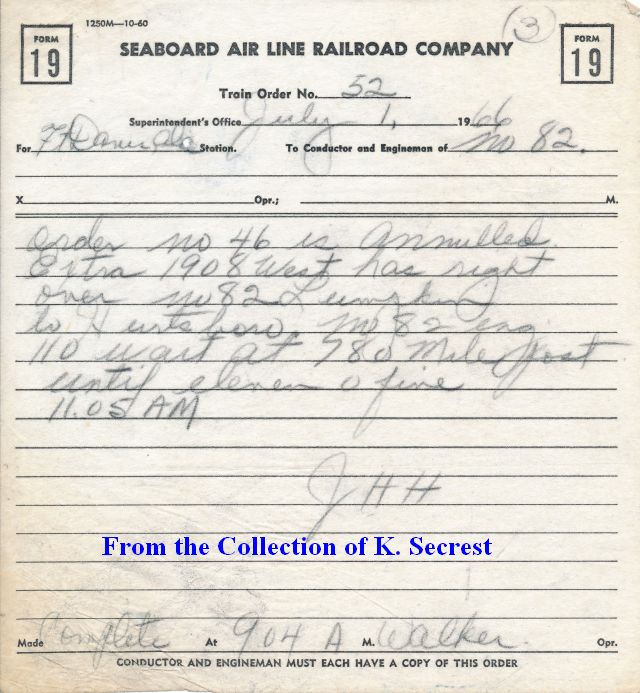 1250M—10-60
3
FORM 19
SEABOARD AIR LINE RAILROAD COMPANY
FORM 19
Train Order No. 52
Superintendent's Office July 1, 1966
For Station. To Conductor and Engineman of No 82.
X Opr.; M.
Order No 46 is annulled.
Extra 1908 West has right
over No 82 Lumpkin
to Hurtsboro. No 82 eng
110 wait at 780 Mile Post
until eleven o five
11.05 AM
JHH
From the Collection of K. Secrest
Made Complete At 904 A M. Walker Opr.
CONDUCTOR AND ENGINEMAN MUST EACH HAVE A COPY OF THIS ORDER